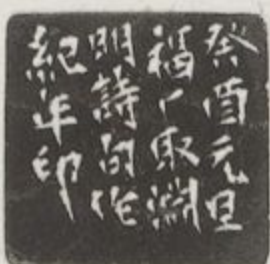 癸酉元旦
福丁取淵
明詩句作
紀年印